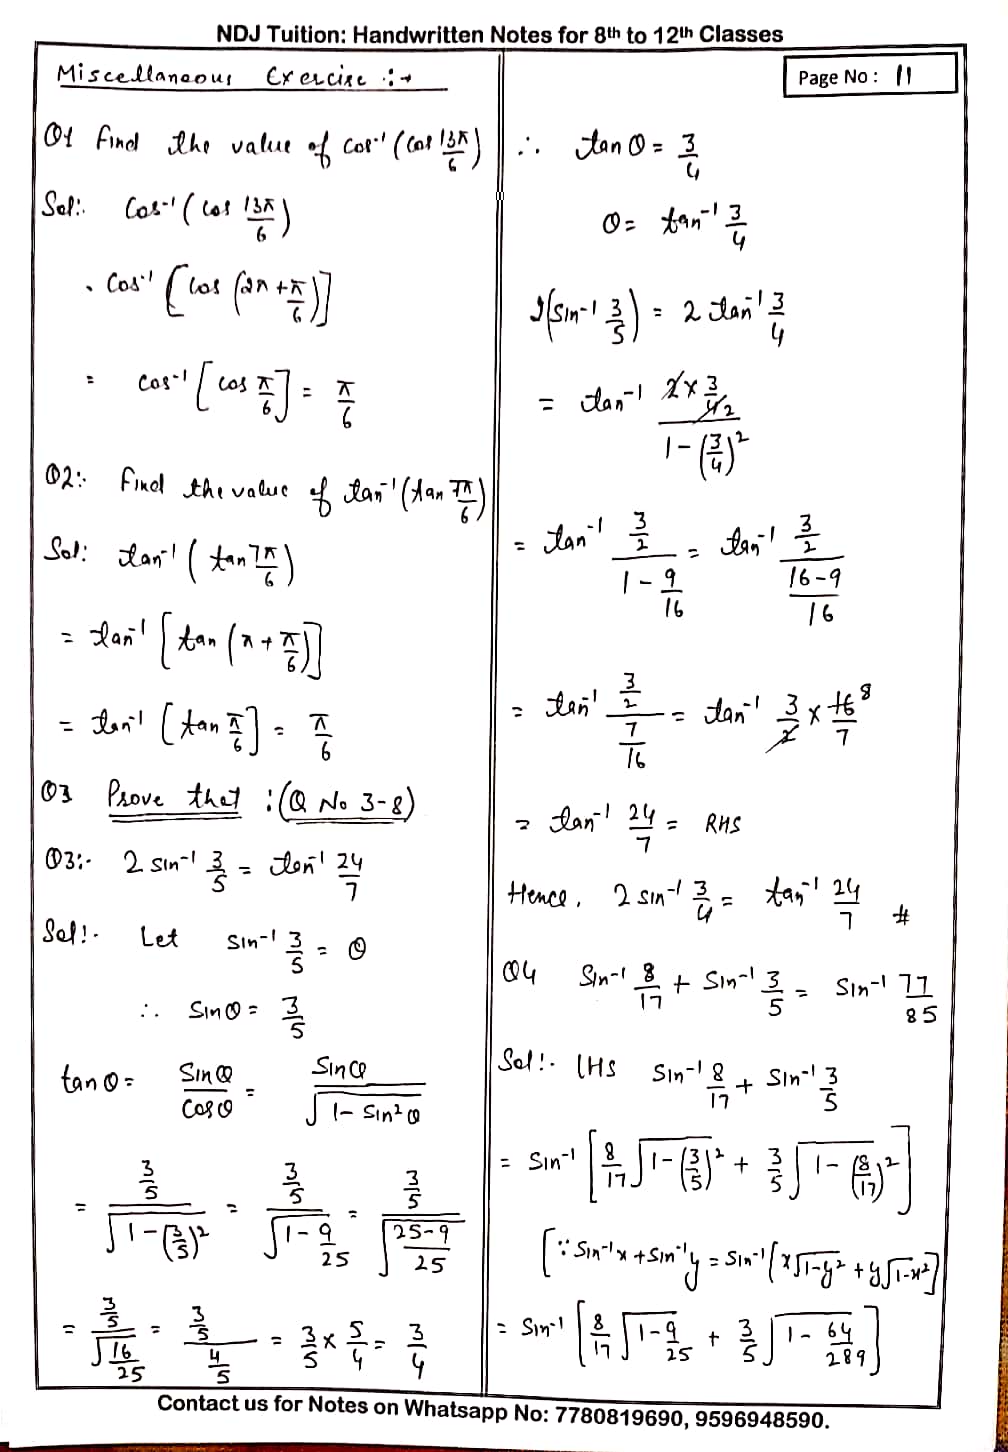 NDJ Tuition: Handwritten Notes for 8th to 12th Classes
Miscellaneous Exercise :→
Page No : 11
Q1 Find the value of cos⁻¹(cos 13π/6)
Sol:. Cos⁻¹(cos 13π/6)
. Cos⁻¹[cos(2π+π/6)]
= cos⁻¹[cos π/6] = π/6
Q2:. Find the value of tan⁻¹(tan 7π/6)
Sol: tan⁻¹(tan 7π/6)
= tan⁻¹[tan(π+π/6)]
= tan⁻¹[tan π/6] = π/6
Q3 Prove that :(Q No 3-8)
Q3:- 2 sin⁻¹ 3/5 = tan⁻¹ 24/7
Sol!. Let sin⁻¹ 3/5 = θ
∴ Sinθ = 3/5
tanθ = Sinθ/Cosθ = Sinθ/√(1-Sin²θ)
= (3/5)/√(1-(3/5)²) = (3/5)/√(1-9/25) = (3/5)/√((25-9)/25)
= (3/5)/√(16/25) = (3/5)/(4/5) = 3/5 × 5/4 = 3/4
∴ tanθ = 3/4
θ = tan⁻¹ 3/4
2(sin⁻¹ 3/5) = 2 tan⁻¹ 3/4
= tan⁻¹ (2×3/4 2)/(1-(3/4)²)
= tan⁻¹ (3/2)/(1-9/16) = tan⁻¹ (3/2)/((16-9)/16)
= tan⁻¹ (3/2)/(7/16) = tan⁻¹ 3/2 × 16 8/7
= tan⁻¹ 24/7 = RHS
Hence, 2 sin⁻¹ 3/4 = tan⁻¹ 24/7 #
Q4 Sin⁻¹ 8/17 + Sin⁻¹ 3/5 = Sin⁻¹ 77/85
Sol!. LHS Sin⁻¹ 8/17 + Sin⁻¹ 3/5
= Sin⁻¹[8/17 √(1-(3/5)²) + 3/5 √(1-(8/17)²)]
[∵ Sin⁻¹x + Sin⁻¹y = Sin⁻¹(x√(1-y²) + y√(1-x²)]
= Sin⁻¹[8/17 √(1-9/25) + 3/5 √(1-64/289)]
Contact us for Notes on Whatsapp No: 7780819690, 9596948590.